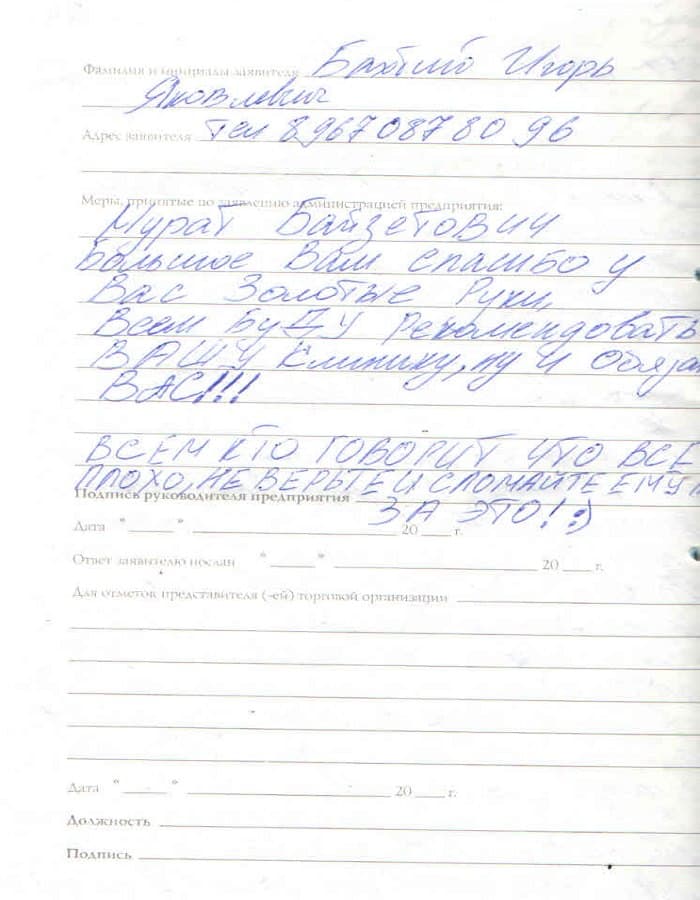 Фамилия и инициалы заявителя Игорь
Яковлевич
Адрес заявителя Тел 8 967 087 80 96
Меры, принятые по заявлению администрацией предприятия:
Мурат Байзетович
Большое Вам спасибо у
Вас Золотые Руки,
Всем Буду Рекомендовать
ВАШУ Клинику, ну и Обяза
ВАС!!!
ВСЕМ КТО ГОВОРИТ ЧТО ВСЕ
ПЛОХО, НЕ ВЕРЬТЕ И СЛОМАЙТЕ ЕМУ
Подпись руководителя предприятия
ЗА ЭТО! :)
Дата " " 20 г.
Ответ заявителю послан " " 20 г.
Для отметок представителя (-ей) торговой организации
Дата " " 20 г.
Должность
Подпись